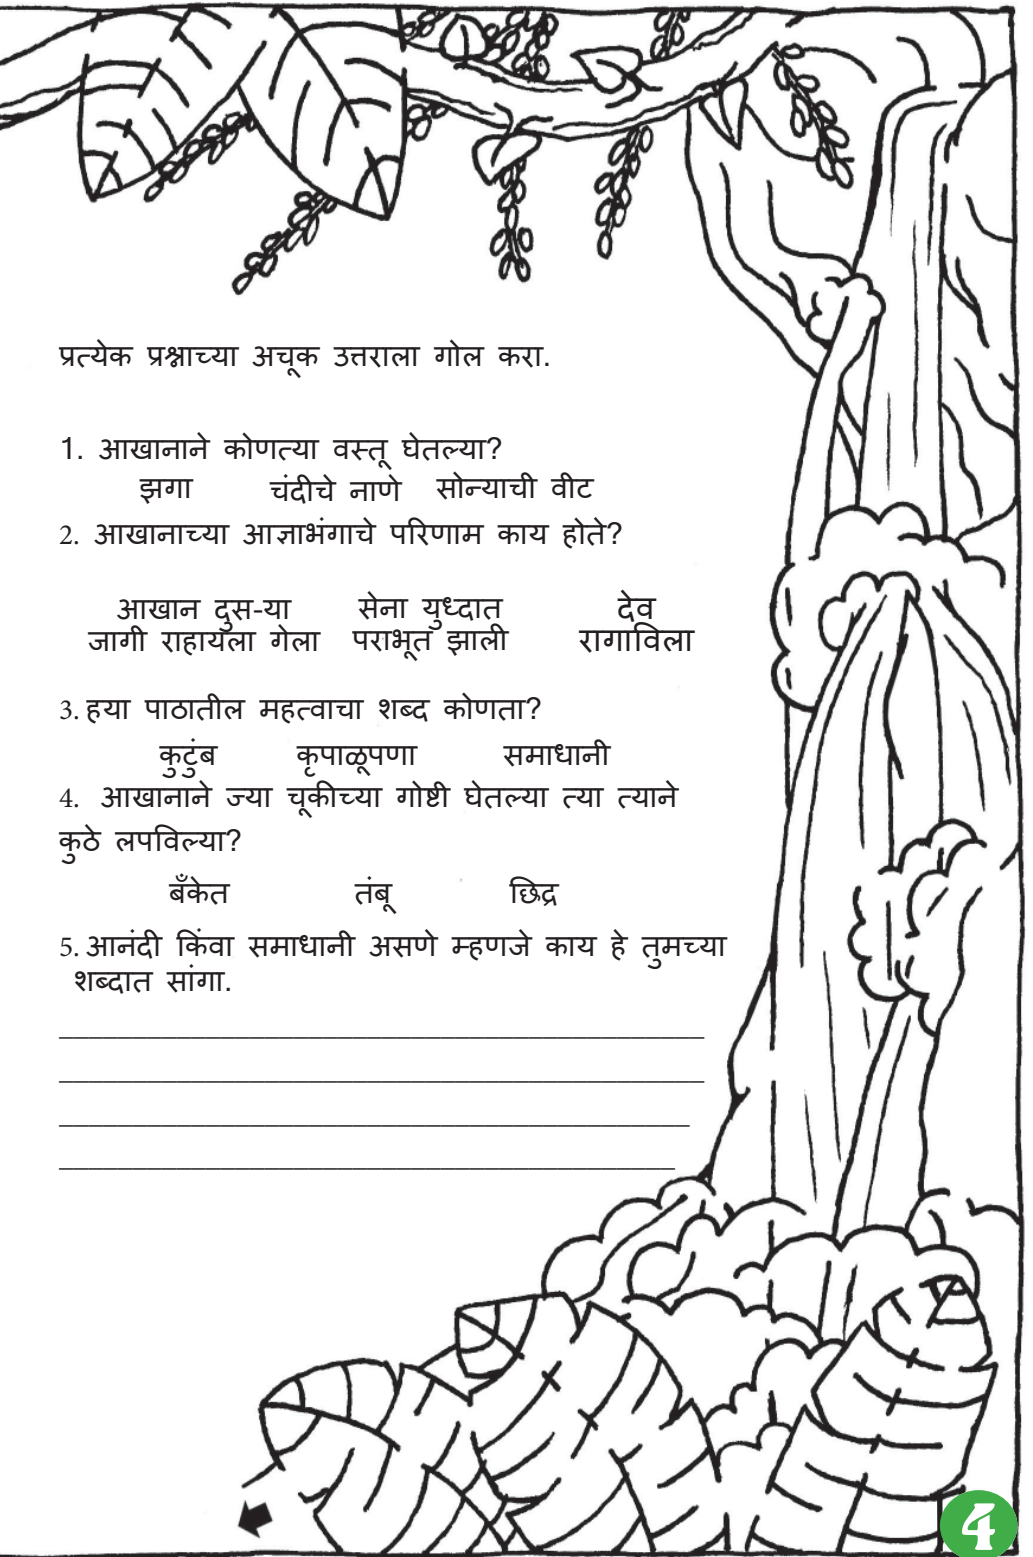 प्रत्येक प्रश्नाच्या अचूक उत्तराला गोल करा.
1. आखानाने कोणत्या वस्तू घेतल्या?
झगा चंदीचे नाणे सोन्याची वीट
2. आखानाच्या आज्ञाभंगाचे परिणाम काय होते?
आखान दुस-या सेना युध्दात देव
जागी राहायला गेला पराभूत झाली रागाविला
3. हया पाठातील महत्वाचा शब्द कोणता?
कुटुंब कृपाळूपणा समाधानी
4. आखानाने ज्या चूकीच्या गोष्टी घेतल्या त्या त्याने
कुठे लपविल्या?
बँकेत तंबू छिद्र
5. आनंदी किंवा समाधानी असणे म्हणजे काय हे तुमच्या
शब्दात सांगा.
4